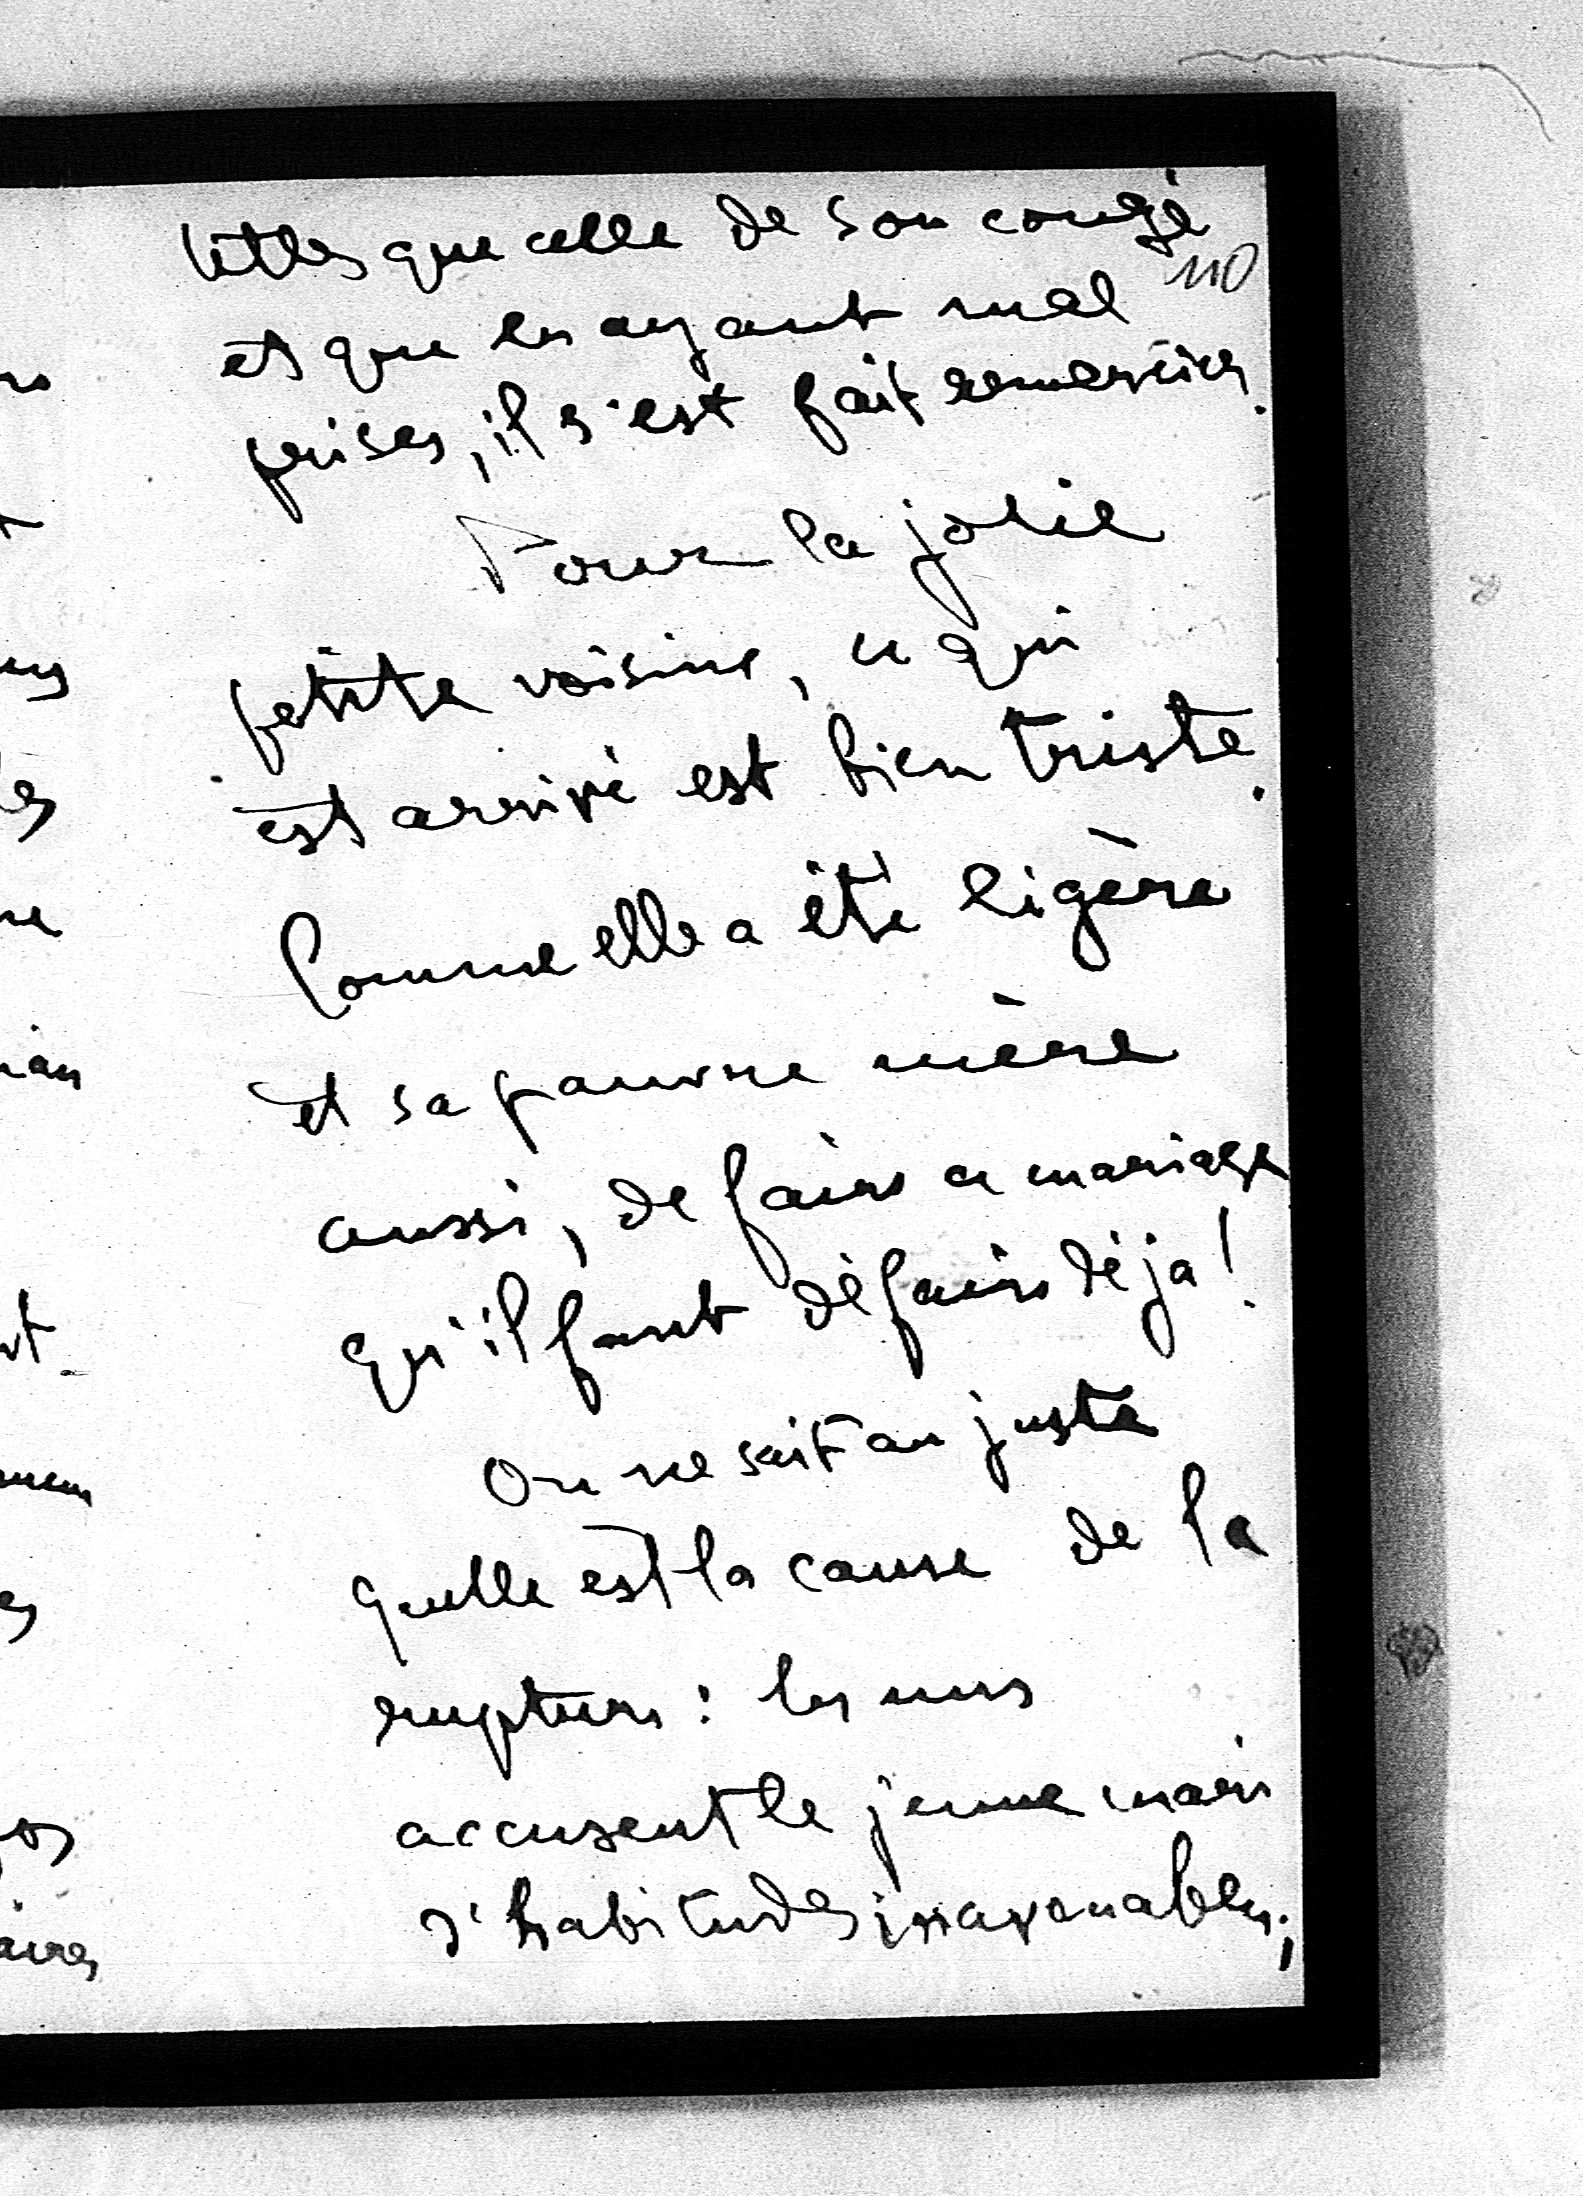 telles que celle de son congé
110
et que les ayant mal
prises, il s'est fait remercier.
Pour la jolie
petite voisine, ce qui
est arrivé est bien triste.
Comme elle a été légère
et sa pauvre mère
aussi, de faire ce mariage
qu'il faut défaire déjà !
On ne sait au juste
quelle est la cause de la
rupture : les uns
accusent le jeune mari
d'habitudes inavouables ;